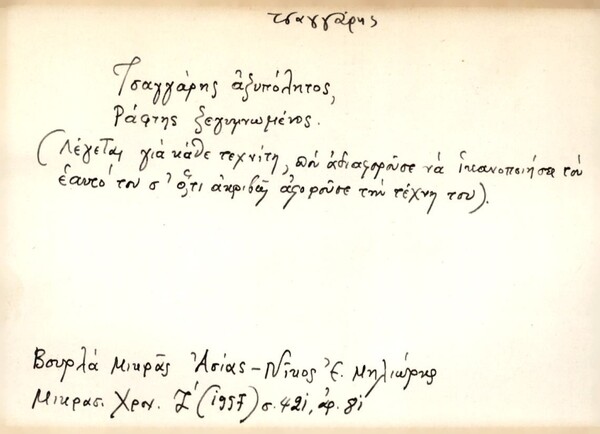 τσαγγάρης
Τσαγγάρης ἀξυπόλητος,
Ράφτης ξεγυμνωμένος.
(Λέγεται γιὰ κάθε τεχνίτη, ποὺ ἀδιαφοροῦσε νὰ ἱκανοποιήσει τὸν
ἑαυτό του σ' ὅ,τι ἀκριβῶς ἀφοροῦσε τὴν τέχνη του).
Βουρλά Μικρᾶς Ἀσίας - Νῖκος Ἐ. Μηλιώρης
Μικρασ. Χρον. Ζ' (1957) σ. 421, ἀρ. 81